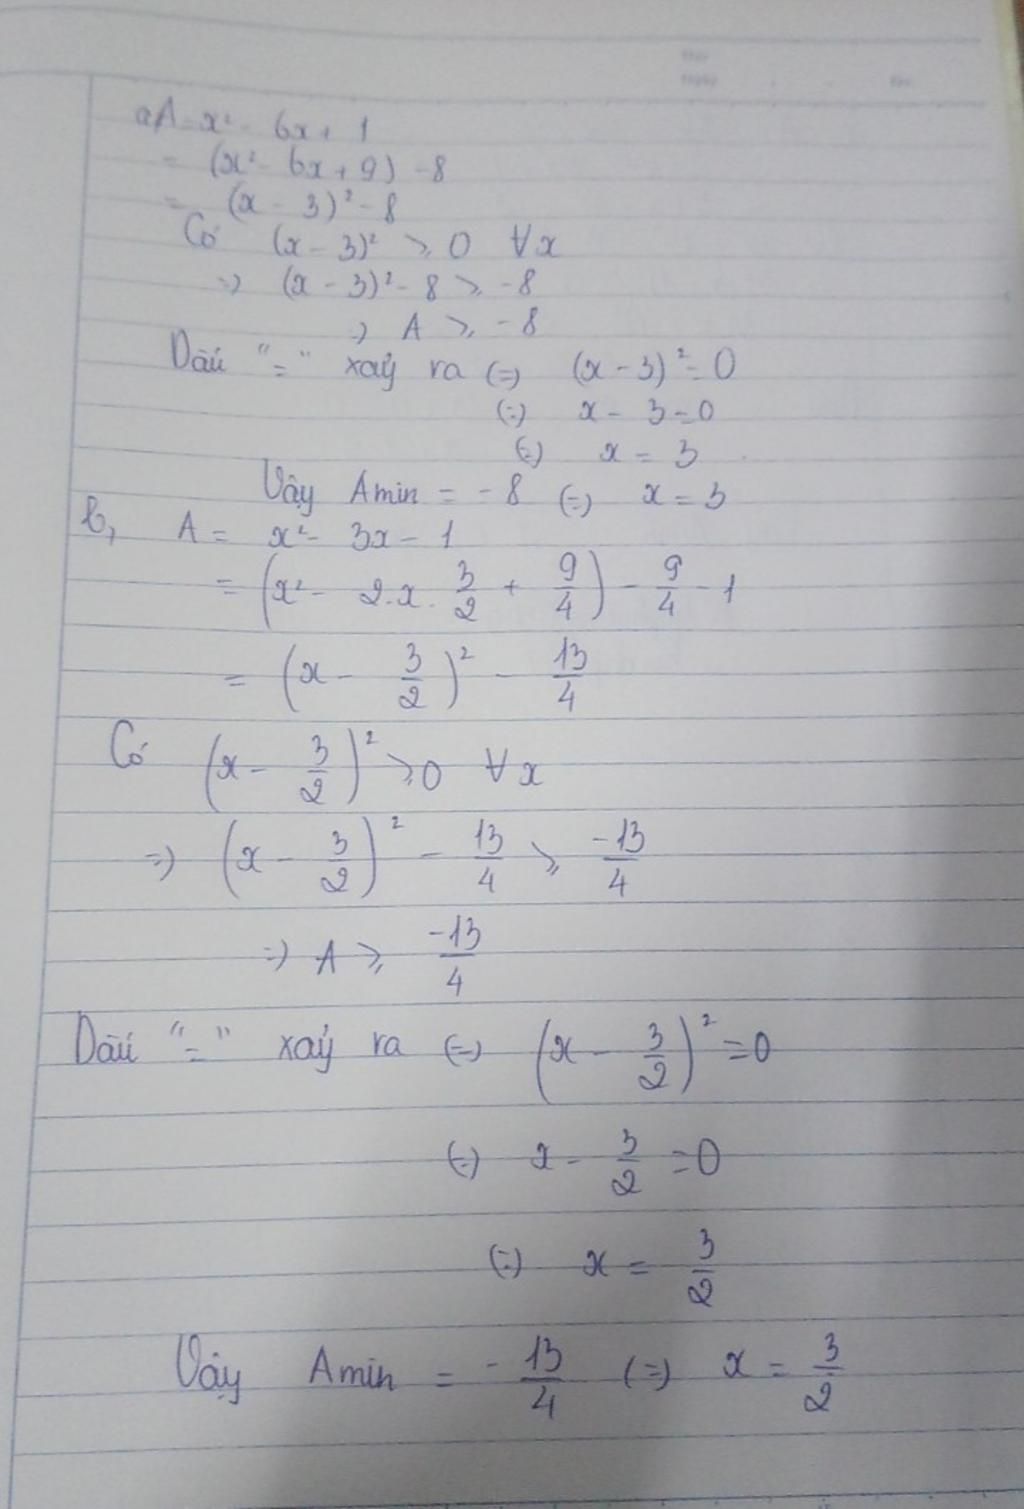 a, A = x² - 6x + 1
= (x² - 6x + 9) - 8
= (x - 3)² - 8
Có (x - 3)² ⩾ 0 ∀x
=> (x - 3)² - 8 ⩾ -8
=> A ⩾ -8
Dấu "=" xảy ra (=) (x - 3)² = 0
(=) x - 3 = 0
(=) x = 3
Vậy Amin = -8 (=) x = 3
b, A = x² - 3x - 1
= (x² - 2.x.3/2 + 9/4) - 9/4 - 1
= (x - 3/2)² - 13/4
Có (x - 3/2)² ⩾ 0 ∀x
=> (x - 3/2)² - 13/4 ⩾ -13/4
=> A ⩾ -13/4
Dấu "=" xảy ra (=) (x - 3/2)² = 0
(=) x - 3/2 = 0
(=) x = 3/2
Vậy Amin = -13/4 (=) x = 3/2